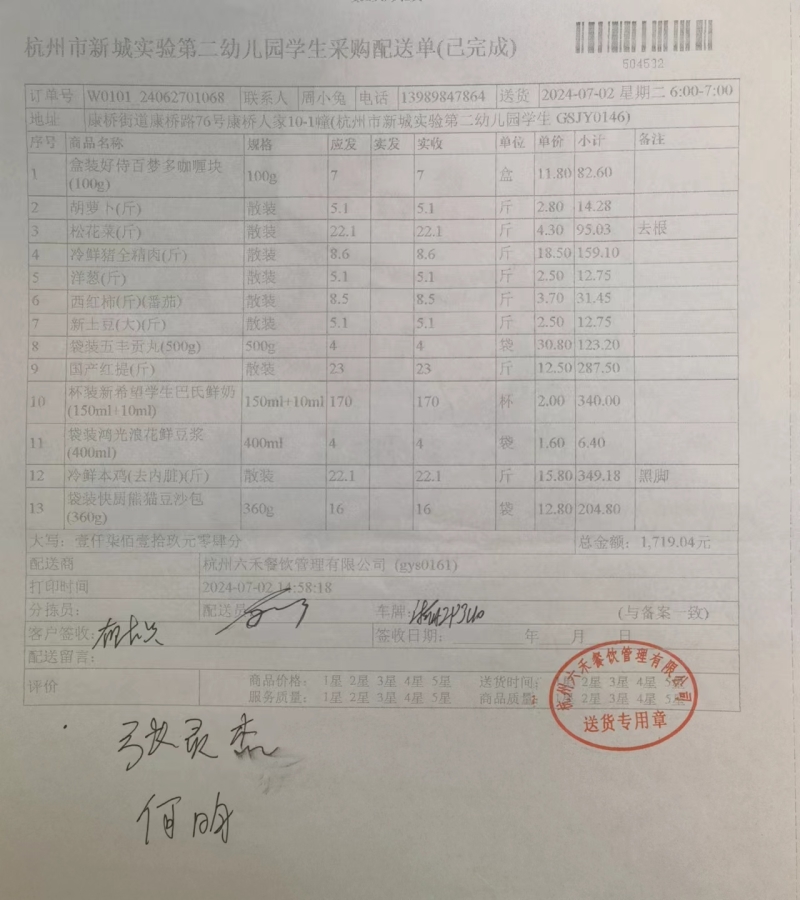 杭州市新城实验第二幼儿园学生采购配送单(已完成)
504532
订单号 W0101_24062701068 联系人 周小兔 电话 13989847864 送货 2024-07-02 星期二 6:00-7:00
地址 康桥街道康桥路76号康桥人家10-1幢(杭州市新城实验第二幼儿园学生 GSJY0146)
序号 商品名称 规格 应发 实发 实收 单位 单价 小计 备注
1 盒装好侍百梦多咖喱块(100g) 100g 7 7 盒 11.80 82.60
2 胡萝卜(斤) 散装 5.1 5.1 斤 2.80 14.28
3 松花菜(斤) 散装 22.1 22.1 斤 4.30 95.03 去根
4 冷鲜猪全精肉(斤) 散装 8.6 8.6 斤 18.50 159.10
5 洋葱(斤) 散装 5.1 5.1 斤 2.50 12.75
6 西红柿(斤)(番茄) 散装 8.5 8.5 斤 3.70 31.45
7 新土豆(大)(斤) 散装 5.1 5.1 斤 2.50 12.75
8 袋装五丰贡丸(500g) 500g 4 4 袋 30.80 123.20
9 国产红提(斤) 散装 23 23 斤 12.50 287.50
10 杯装新希望学生巴氏鲜奶(150ml+10ml) 150ml+10ml 170 170 杯 2.00 340.00
11 袋装鸿光浪花鲜豆浆(400ml) 400ml 4 4 袋 1.60 6.40
12 冷鲜本鸡(去内脏)(斤) 散装 22.1 22.1 斤 15.80 349.18 黑脚
13 袋装快厨熊猫豆沙包(360g) 360g 16 16 袋 12.80 204.80
大写: 壹仟柒佰壹拾玖元零肆分 总金额: 1,719.04元
配送商 杭州六禾餐饮管理有限公司 (gys0161)
打印时间 2024-07-02 14:58:18
分拣员: 配送员 车牌: (与备案一致)
客户签收: 签收日期: 年 月 日
配送留言:
评价 商品价格: 1星 2星 3星 4星 5星 送货时间: 2星 3星 4星
服务质量: 1星 2星 3星 4星 5星 商品质量: 2星 3星 4星 5星
杭州六禾餐饮管理有限公司
送货专用章
张灵杰
何明